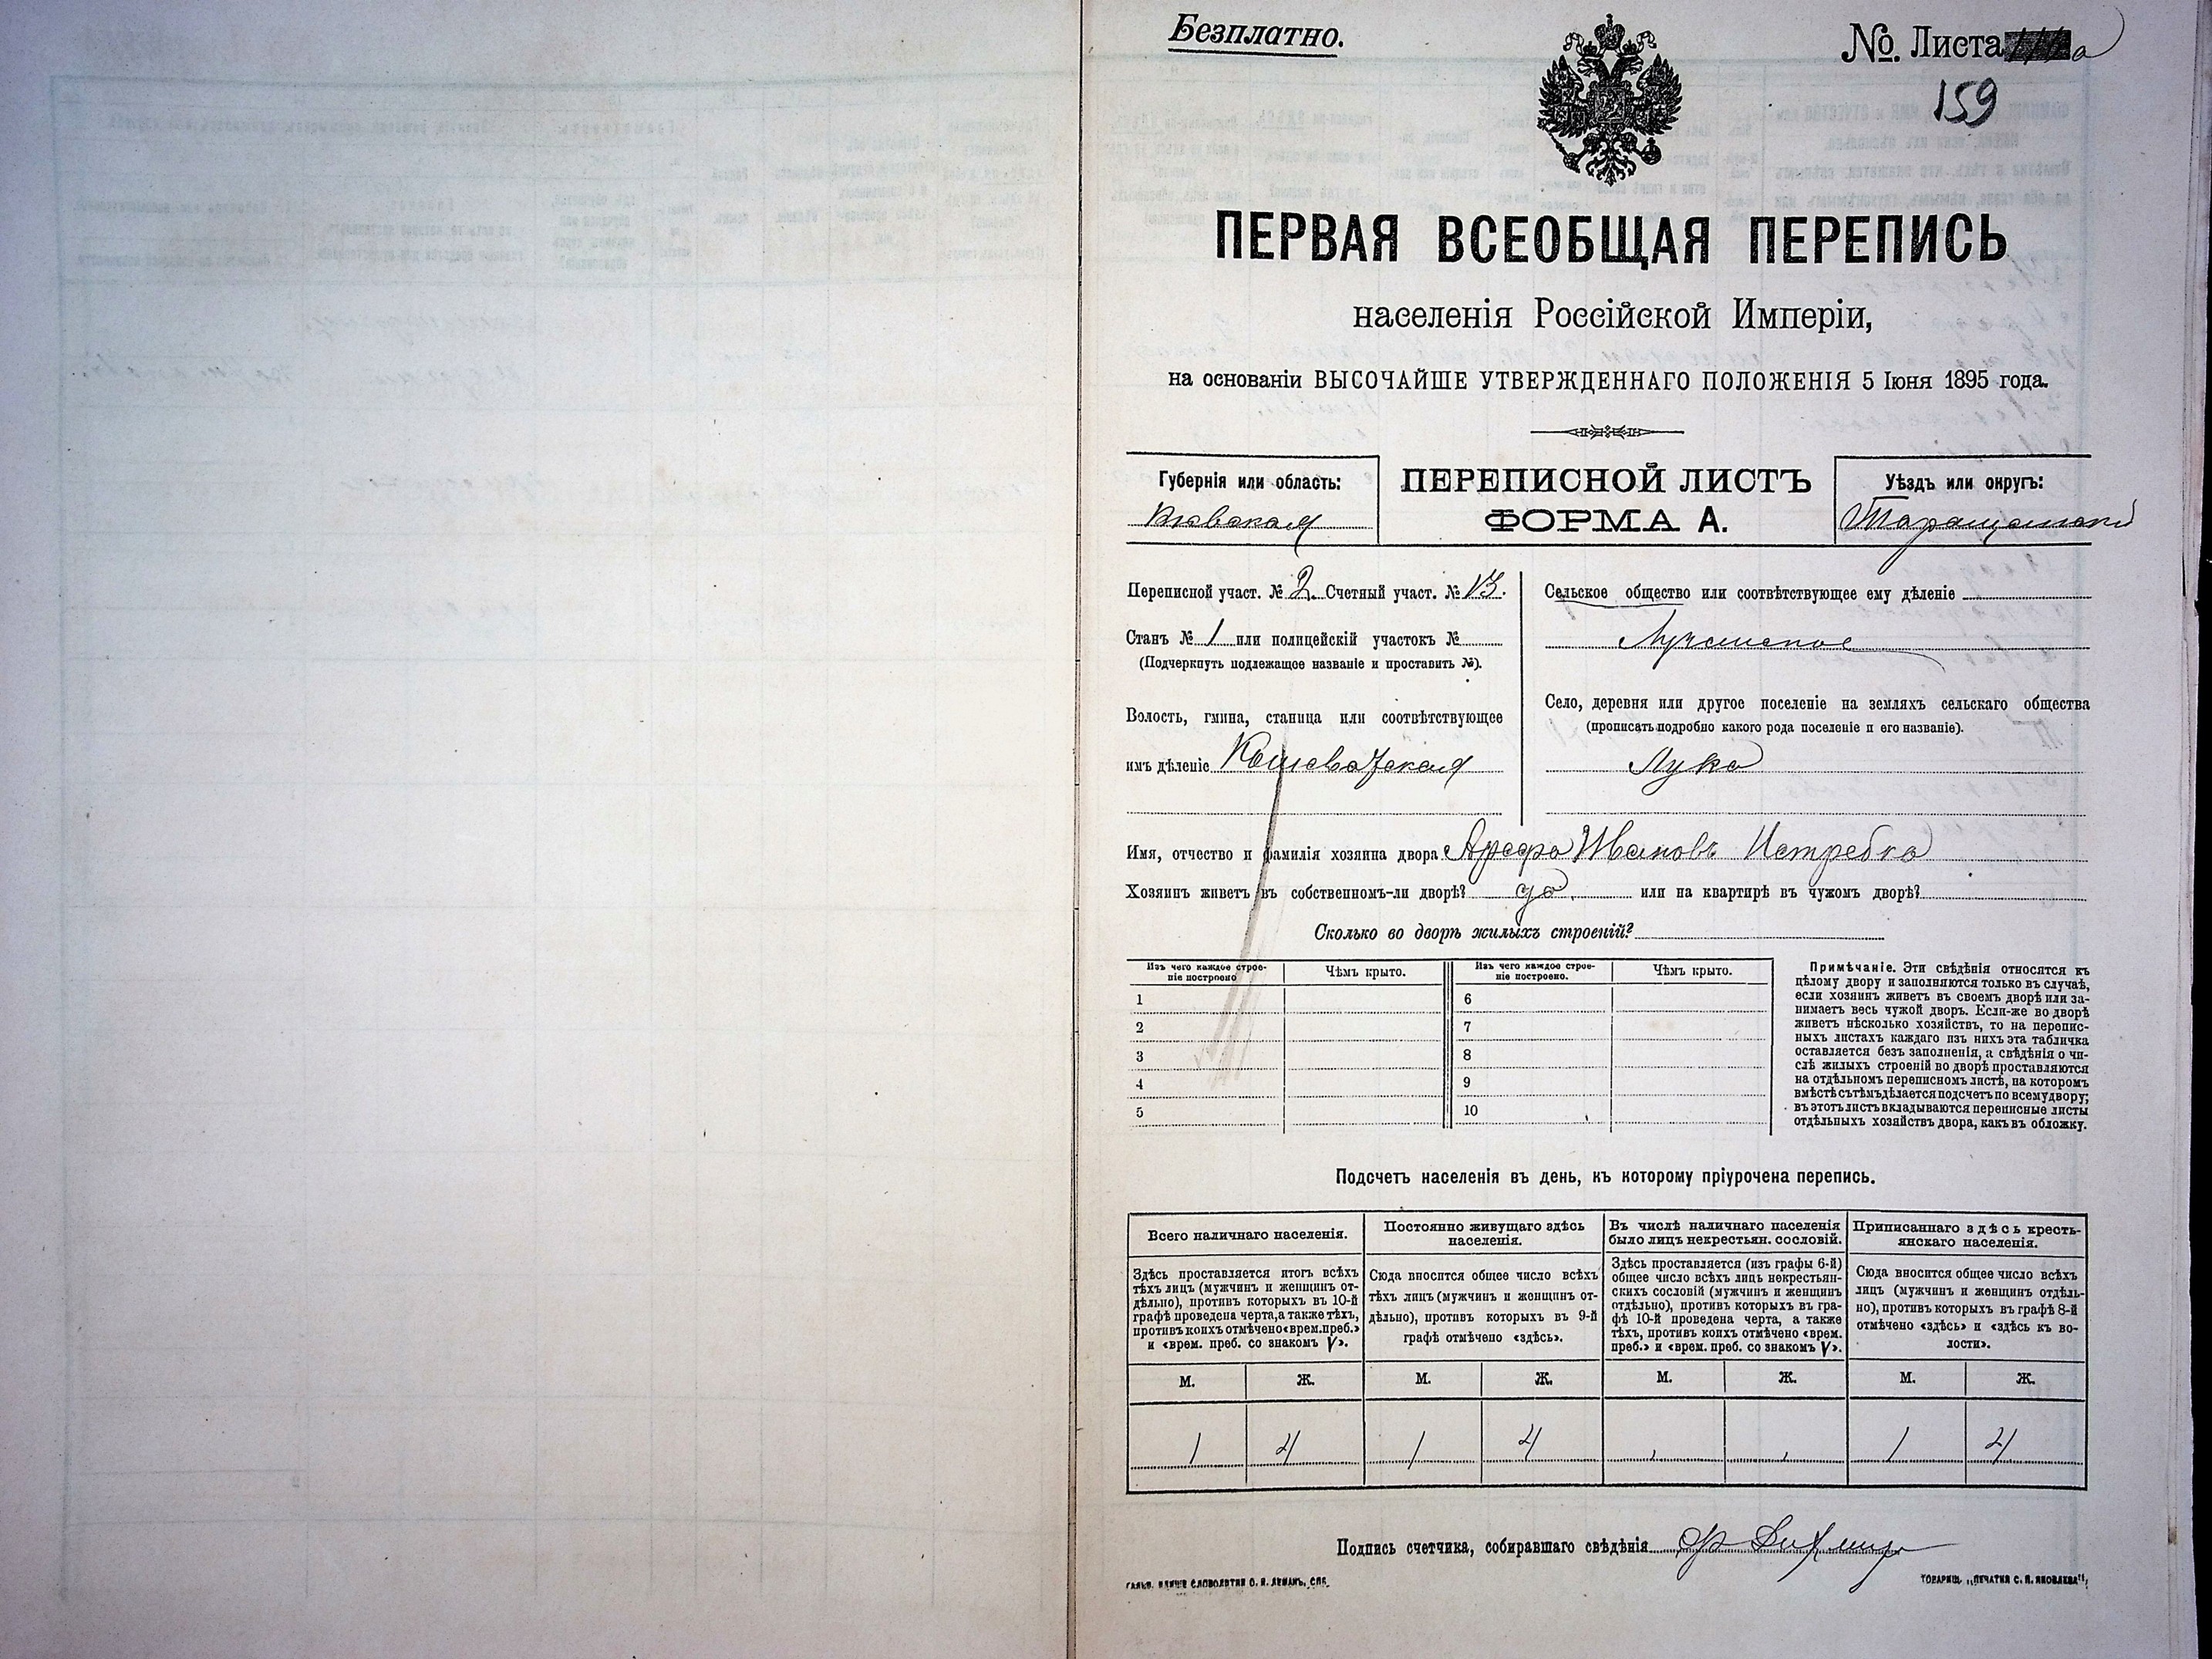 Безплатно.
№. Листа
159
ПЕРВАЯ ВСЕОБЩАЯ ПЕРЕПИСЬ
населенія Россійской Имперіи,
на основаніи ВЫСОЧАЙШЕ УТВЕРЖДЕННАГО ПОЛОЖЕНІЯ 5 Іюня 1895 года.
Губернія или область:
Кіевская
ПЕРЕПИСНОЙ ЛИСТЪ
ФОРМА А.
Уѣздъ или округъ:
Таращанскій
Переписной участ. № 2. Счетный участ. № 13.
Станъ № 1 или полицейскій участокъ №
(Подчеркнуть подлежащее названіе и проставить №).
Волость, гмина, станица или соотвѣтствующее
имъ дѣленіе Кошеватская
Сельское общество или соотвѣтствующее ему дѣленіе
Лучанское
Село, деревня или другое поселеніе на земляхъ сельскаго общества
(прописать подробно какого рода поселеніе и его названіе).
Лука
Имя, отчество и фамилія хозяина двора Ивановъ
Хозяинъ живетъ въ собственномъ-ли дворѣ? да. или на квартирѣ въ чужомъ дворѣ?
Сколько во дворѣ жилыхъ строеній?
Изъ чего каждое строе-
ніе построено
Чѣмъ крыто.
1
2
3
4
5
Изъ чего каждое строе-
ніе построено.
Чѣмъ крыто.
6
7
8
9
10
Примѣчаніе. Эти свѣдѣнія относятся къ
цѣлому двору и заполняются только въ случаѣ,
если хозяинъ живетъ въ своемъ дворѣ или за-
нимаетъ весь чужой дворъ. Если-же во дворѣ
живетъ нѣсколько хозяйствъ, то на перепис-
ныхъ листахъ каждаго изъ нихъ эта табличка
оставляется безъ заполненія, а свѣдѣнія о чи-
слѣ жилыхъ строеній во дворѣ проставляются
на отдѣльномъ переписномъ листѣ, на которомъ
вмѣстѣ съ тѣмъ дѣлается подсчетъ по всему двору;
въ этотъ листъ вкладываются переписные листы
отдѣльныхъ хозяйствъ двора, какъ въ обложку.
Подсчетъ населенія въ день, къ которому пріурочена перепись.
Всего наличнаго населенія.
Здѣсь проставляется итогъ всѣхъ
тѣхъ лицъ (мужчинъ и женщинъ от-
дѣльно), противъ которыхъ въ 10-й
графѣ проведена черта, а также тѣхъ,
противъ коихъ отмѣчено «врем. преб.»
и «врем. преб. со знакомъ V».
Постоянно живущаго здѣсь
населенія.
Сюда вносится общее число всѣхъ
тѣхъ лицъ (мужчинъ и женщинъ от-
дѣльно), противъ которыхъ въ 9-й
графѣ отмѣчено «здѣсь».
Въ числѣ наличнаго населенія
было лицъ некрестьян. сословій.
Здѣсь проставляется (изъ графы 6-й)
общее число всѣхъ лицъ некрестьян-
скихъ сословій (мужчинъ и женщинъ
отдѣльно), противъ которыхъ въ гра-
фѣ 10-й проведена черта, а также
тѣхъ, противъ коихъ отмѣчено «врем.
преб.» и «врем. преб. со знакомъ V».
Приписаннаго здѣсь кресть-
янскаго населенія.
Сюда вносится общее число всѣхъ
лицъ (мужчинъ и женщинъ отдѣль-
но), противъ которыхъ въ графѣ 8-й
отмѣчено «здѣсь» и «здѣсь къ во-
лости».
М. Ж. М. Ж. М. Ж. М. Ж.
1 4 1 4 1 4
Подпись счетчика, собиравшаго свѣдѣнія
СЛОВОЛИТНИ О. И. ЛЕМАНЪ, СПБ.
ТОВАРИЩ. „ПЕЧАТНЯ С. П. ЯКОВЛЕВА"